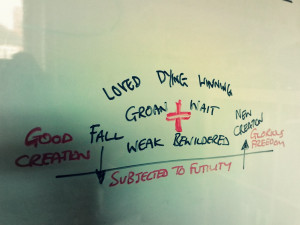 LOVED DYING WINNING
GROAN WAIT
NEW
CREATION
GOOD
CREATION
FALL
WEAK BEWILDERED
GLORIOUS
FREEDOM
SUBJECTED TO FUTILITY